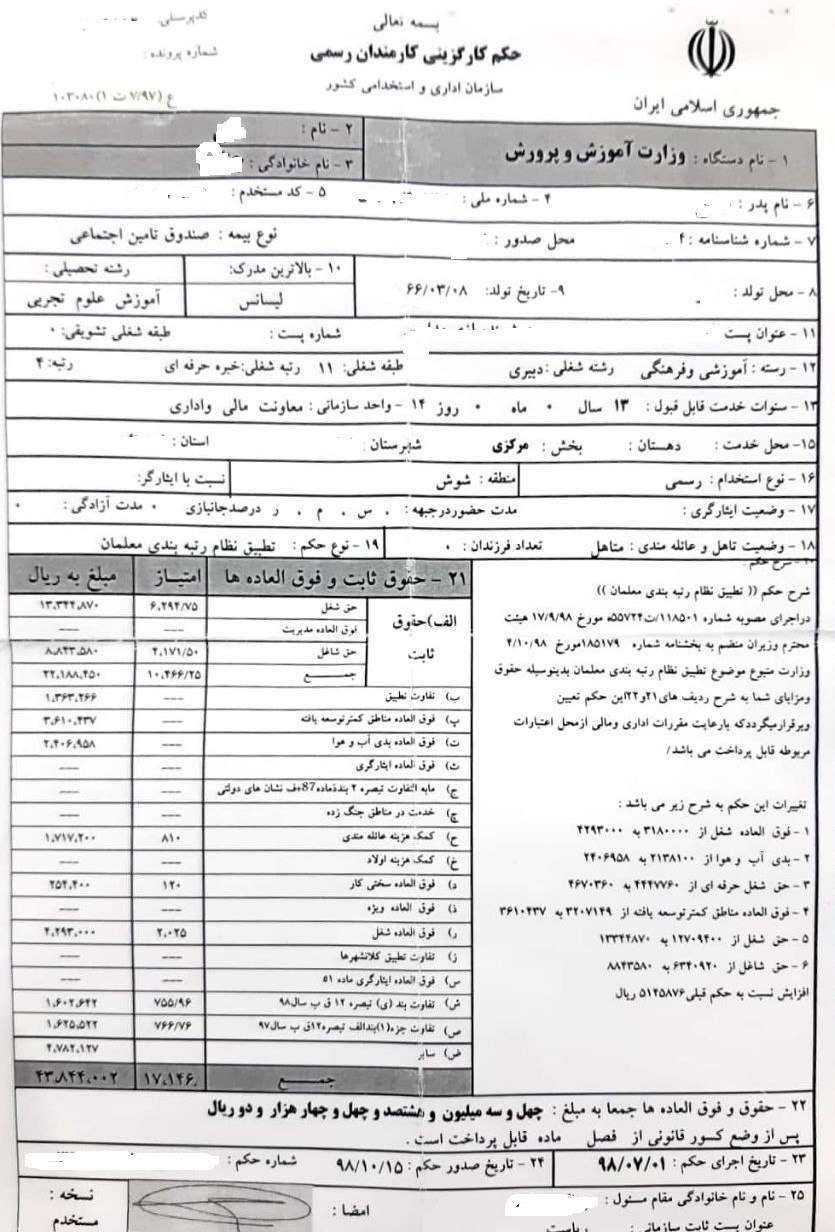 بسمه تعالی
کدپرسنلی:
حکم کارگزینی کارمندان رسمی
شماره پرونده:
سازمان اداری و استخدامی کشور
ع (۷/۹۷ت ۱) ۱۰۳۰۸۰
جمهوری اسلامی ایران
۱ - نام دستگاه : وزارت آموزش و پرورش
۲ - نام :
۳ - نام خانوادگی :
۶ - نام پدر :
۴ - شماره ملی :
۵ - کد مستخدم :
۷ - شماره شناسنامه : ۴
محل صدور :
نوع بیمه : صندوق تامین اجتماعی
۸ - محل تولد :
۹- تاریخ تولد: ۶۶/۰۳/۰۸
۱۰ - بالاترین مدرک:
لیسانس
رشته تحصیلی :
آموزش علوم تجربی
۱۱ - عنوان پست
شماره پست :
طبقه شغلی تشویقی: ۰
۱۲ - رسته : آموزشی وفرهنگی رشته شغلی : دبیری طبقه شغلی: ۱۱ رتبه شغلی:خبره حرفه ای رتبه: ۴
۱۳ - سنوات خدمت قابل قبول : ۱۳ سال ۰ ماه ۰ روز ۱۴ - واحد سازمانی : معاونت مالی واداری
۱۵- محل خدمت : دهستان : بخش : مرکزی شهرستان : استان :
۱۶ - نوع استخدام : رسمی
منطقه : شوش
نسبت با ایثارگر:
۱۷ - وضعیت ایثارگری : مدت حضوردرجبهه : . س . م . ر درصدجانبازی ۰ مدت آزادگی : ۰
۱۸ - وضعیت تاهل و عائله مندی : متاهل تعداد فرزندان : ۰
۱۹ - نوع حکم : تطبیق نظام رتبه بندی معلمان
۲۰ - شرح حکم :
شرح حکم (( تطبیق نظام رتبه بندی معلمان ))
دراجرای مصوبه شماره ۱۱۸۵۰۱/ت۵۵۷۲۴ه مورخ ۱۷/۹/۹۸ هیئت
محترم وزیران منضم به بخشنامه شماره ۱۸۵۱۷۹مورخ ۴/۱۰/۹۸
وزارت متبوع موضوع تطبیق نظام رتبه بندی معلمان بدینوسیله حقوق
ومزایای شما به شرح ردیف های۲۱و۲۲این حکم تعیین
وبرقرارمیگرددکه بارعایت مقررات اداری ومالی ازمحل اعتبارات
مربوطه قابل پرداخت می باشد/
تغییرات این حکم به شرح زیر می باشد :
۱ - فوق العاده شغل از ۳۱۸۰۰۰۰ به ۴۲۹۳۰۰۰
۲ - بدی آب و هوا از ۲۱۳۸۱۰۰ به ۲۴۰۶۹۵۸
۳ - حق شغل حرفه ای از ۴۴۴۷۷۶۰ به ۴۶۷۰۳۶۰
۴ - فوق العاده مناطق کمترتوسعه یافته از ۳۲۰۷۱۴۹ به ۳۶۱۰۴۳۷
۵ - حق شغل از ۱۲۷۰۹۴۰۰ به ۱۳۳۴۴۸۷۰
۶ - حق شاغل از ۶۳۴۰۹۲۰ به ۸۸۴۳۵۸۰
افزایش نسبت به حکم قبلی۵۱۴۵۸۷۶ ریال
۲۱ - حقوق ثابت و فوق العاده ها امتیاز مبلغ به ریال
الف)حقوق ثابت
حق شغل ۶,۲۹۴/۷۵ ۱۳,۳۴۴,۸۷۰
فوق العاده مدیریت --- ---
حق شاغل ۴,۱۷۱/۵۰ ۸,۸۴۳,۵۸۰
جمـــــع ۱۰,۴۶۶/۲۵ ۲۲,۱۸۸,۴۵۰
ب) تفاوت تطبیق --- ۱,۳۶۳,۲۶۶
پ) فوق العاده مناطق کمترتوسعه یافته --- ۳,۶۱۰,۴۳۷
ت) فوق العاده بدی آب و هوا --- ۲,۴۰۶,۹۵۸
ث) فوق العاده ایثارگری --- ---
ج) مابه التفاوت تبصره ۲ بندذماده87ف نشان های دولتی --- ---
چ) خدمت در مناطق جنگ زده --- ---
ح) کمک هزینه عائله مندی ۸۱۰ ۱,۷۱۷,۲۰۰
خ) کمک هزینه اولاد --- ---
د) فوق العاده سختی کار ۱۲۰ ۲۵۴,۴۰۰
ذ) فوق العاده ویژه --- ---
ر) فوق العاده شغل ۲,۰۲۵ ۴,۲۹۳,۰۰۰
ز) تفاوت تطبیق کلانشهرها --- ---
س) فوق العاده ایثارگری ماده ۵۱ --- ---
ش) تفاوت بند (ی) تبصره ۱۲ ق ب سال۹۸ ۷۵۵/۹۶ ۱,۶۰۲,۶۴۲
ص) تفاوت جزء(۱)بندالف تبصره۱۲ق ب سال۹۷ ۷۶۶/۷۶ ۱,۶۲۵,۵۲۲
ض) سایر ۴,۷۸۲,۱۲۷
جمـــــع ۱۷,۱۴۶. ۴۳,۸۴۴,۰۰۲
۲۲ - حقوق و فوق العاده ها جمعا به مبلغ : چهل و سه میلیون و هشتصد و چهل و چهار هزار و دو ریال
پس از وضع کسور قانونی از فصل ماده قابل پرداخت است .
۲۳ - تاریخ اجرای حکم : ۹۸/۰۷/۰۱
۲۴ - تاریخ صدور حکم : ۹۸/۱۰/۱۵
شماره حکم :
۲۵ - نام و نام خانوادگی مقام مسئول :
عنوان پست ثابت سازمانی : ریاست
امضا :
نسخه :
مستخدم